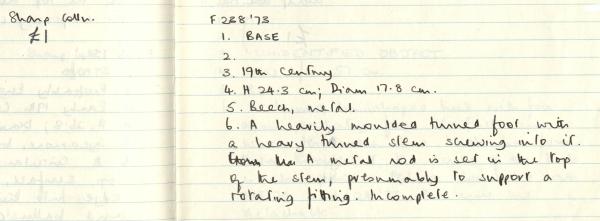 Sharp colln.
£1
F 288'73
1. BASE
2.
3. 19th century
4. H 24.3 cm; Diam 17.8 cm.
5. Beech, metal.
6. A heavily moulded turned foot with
a heavy turned stem screwing into it.
A metal rod is set in the top
of the stem, presumably to support a
rotating fitting. Incomplete.